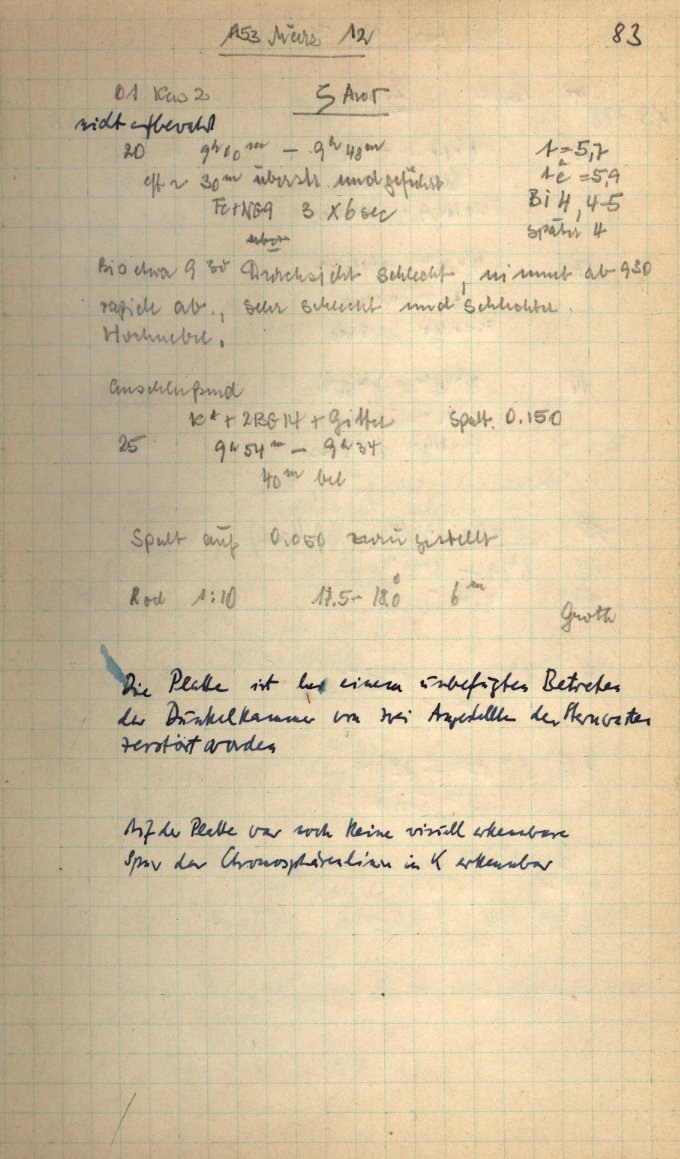 153 März 12
83
ζ Aur
nicht aufbewahrt
20 9h 10m – 9h 48m
t = 5,7
eff ~ 30m überstr. und geführt
te = 5,9
3 x 6 sec
Bi 4, 4-5
später 4
Bis etwa 9 30 Durchsicht schlecht, nimmt ab 930
rapide ab., sehr schlecht und schlechter.
Hochnebel.
Anschließend
+ 2BG14 + Gitter Spalt. 0.150
25 9h 54m – 9h 34
40m bel
Spalt auf 0.050 gestellt
1:10 17.5 – 18.0 6m
Groth
Die Platte ist bei einem unbefugten Betreten
der Dunkelkammer von zwei Angestellten der Sternwarte
zerstört worden
Auf der Platte war noch keine visuell erkennbare
Spur der Chromosphärenlinien in K erkennbar